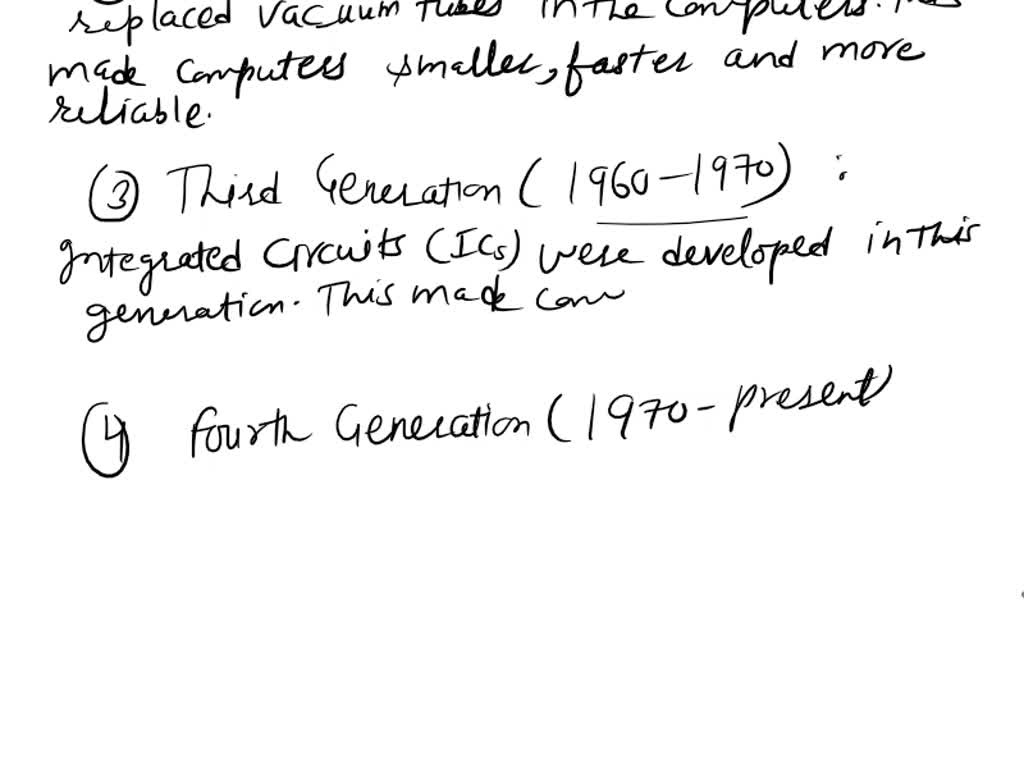 replaced vacuum tubes in the computers. This
made computers smaller, faster and more
reliable.
(3) Third Generation (1960-1970) :
Integrated Circuits (ICs) were developed in this
generation. This made com
(4) fourth Generation (1970- present)